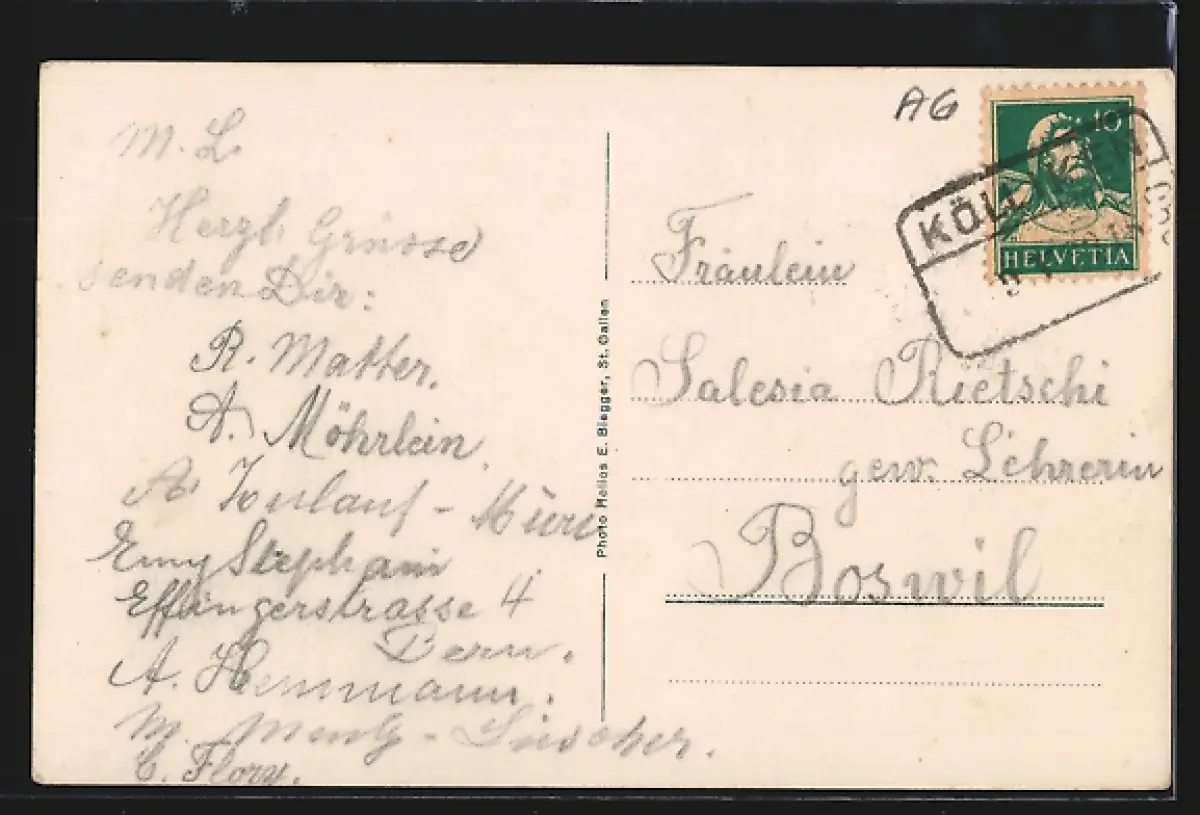 M. L.
Herzl. Grüsse
senden Dir:
R. Matter.
A. Möhrlein.
A. Zulauf - Muri
Emy Stephani
Effingerstrasse 4
Bern.
A. Hemmann.
M. - Lüscher.
C. Flory.
Photo Helios E. Biegger, St. Gallen
AG
10
HELVETIA
KÖLLIKEN
Fräulein
Salesia Rietschi
gew. Lehrerin
Boswil